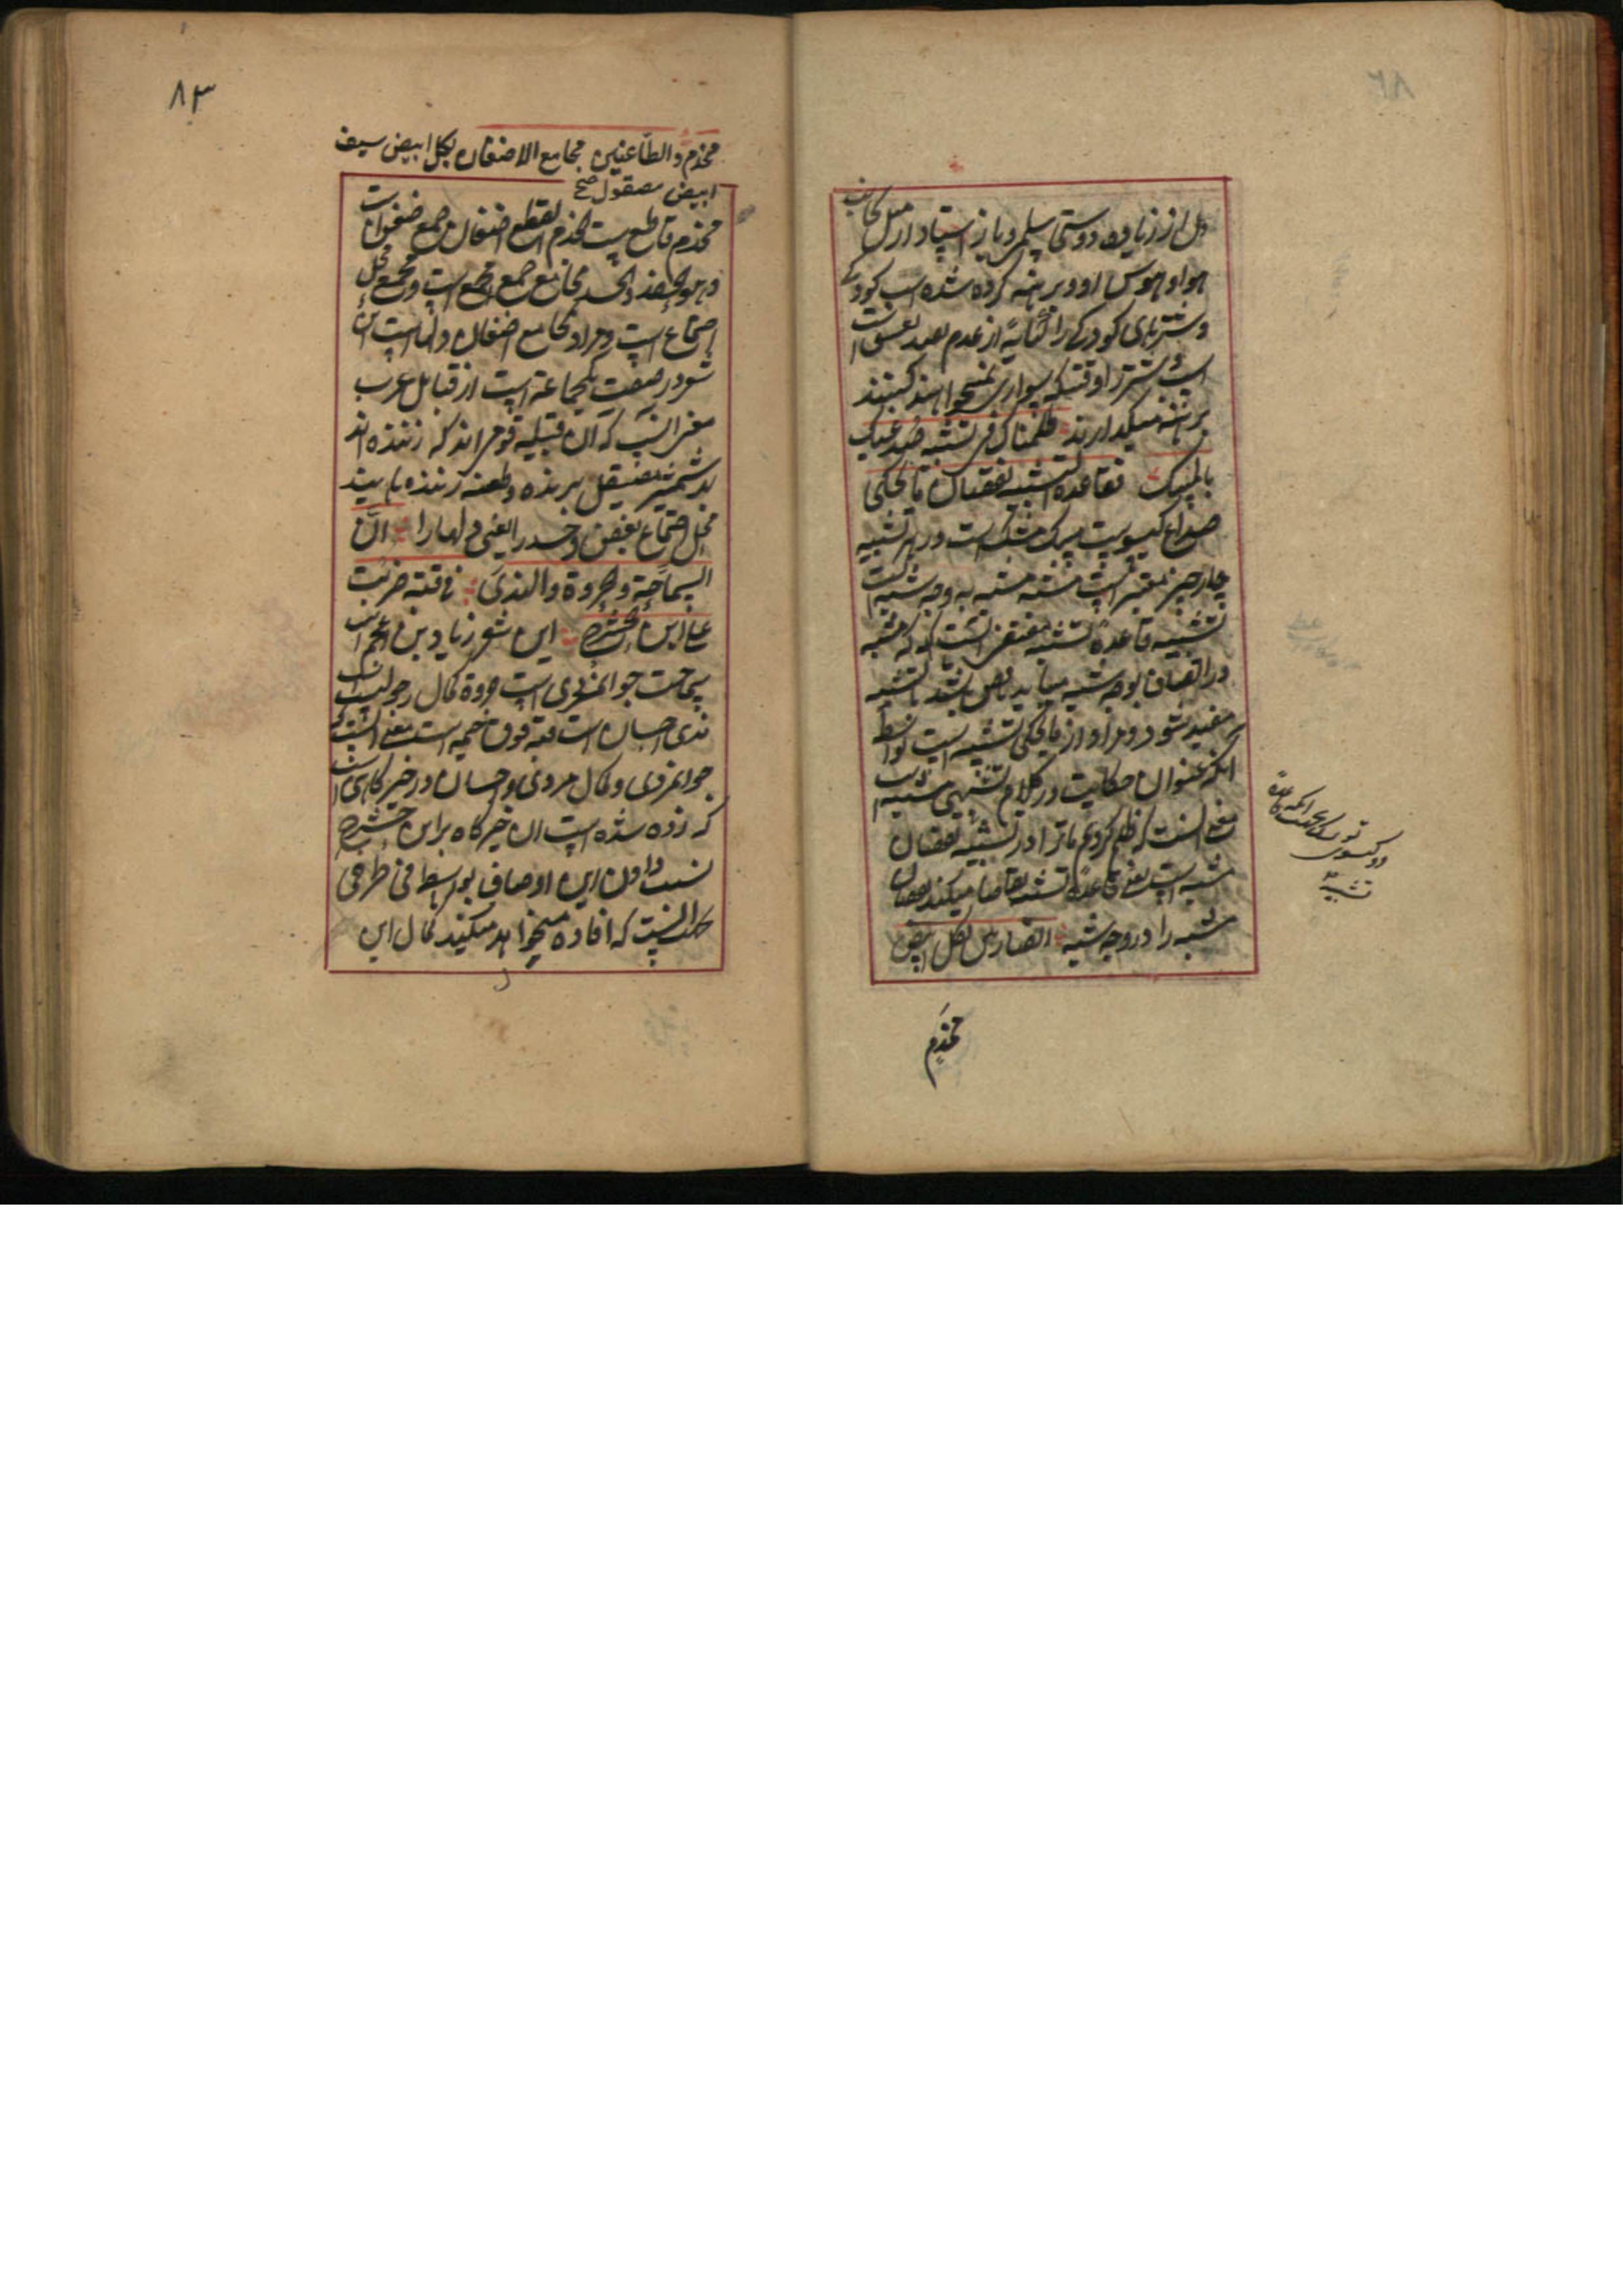 دل از زیاده دوستی سلمی و باز استاد از میل کجانب
هوا و هوس او و برهنه کرده شده اسب کودکی
و شترهای کودکی را کنایة از عدم بعد تعسق است
اسب و شتر را وقتیکه سواری نمیخواهند کنند
برهنه میگذارند ظلمناک فی تشبیه صدغیک
بالمسک فقاعدة التشبیه نقصان ما یحکی
صداغ گیسویست مسک مشک است در هر تشبیه
چار چیز معتبر است مشبه مشبه به وجه شبه ادات
تشبیه قاعدهٔ تشبیه مقتضی انست که که مشبه
در اتصاف بوجه شبه میباید ناقص باشد تا تشبیه
مفید شود و مراد از ما یحکی تشبیه است بواسطه
انکه عنوان حکایت در کلام تشبیهی مشبه است
معنی انست که ظلم کردیم ما ترا در تشبیه نقصان
مشبه است یعنی قاعدهٔ تشبیه تقاضا میکند نقصان
مشبه را در وجه شبه الضاربین بکل ابیض
مخذم
دو گیسوی تو
تشبیه
۸۳
مخذم والطاعنین مجامع الاضغان بکل ابیض سیف
ابیض مصقول صح
مخذم قاطع است الخذم القطع اضغان جمع ضغن است
و هو الحقد والحسد مجامع جمع مجمع است و مجمع محل
اجتماع است و مراد مجامع اضغان دلها است این
شعر در صفت یکجماعة است از قبایل عرب
معنی انست که ان قبیله قومی اند که زننده اند
بشمشیر صیقل برنده و طعنه زننده بایند
محل اجتماع بغض و حسد را یعنی دلها را انّ
السماحة والمروة والندی فی قبة ضربت
علی ابن الحشرج این شعر زیاد بن اعجم است
سماحت جوانمردی است مروة کمال رجولیت است
ندی احسان است قبه فوق خیمه است معنی انست که
جوانمردی و کمال مردی و احسان در خیرگاهی است
که زده شده است ان خیرگاه بر ابن حشرج
نسبت دادن این اوصاف بواسطه فی طرفی
که افاده میخواهد میکند کمال این